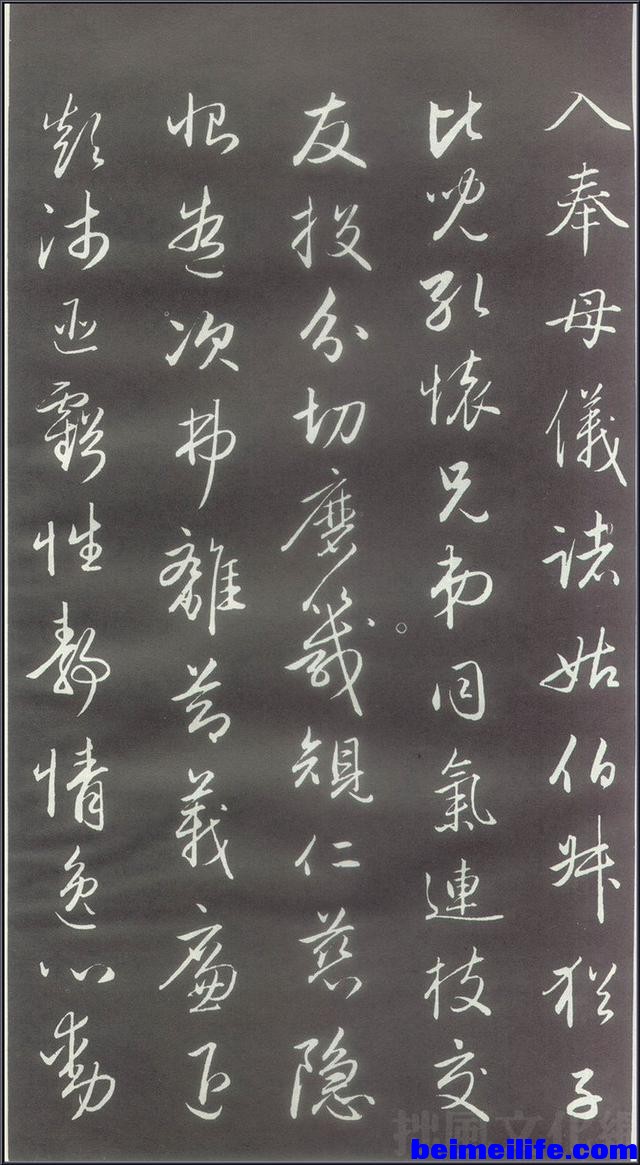 入奉母儀諸姑伯叔猶子
比兒孔懷兄弟同氣連枝交
友投分切磨箴規仁慈隱
惻造次弗離節義廉退
顛沛匪虧性靜情逸心動
beimeilife.com